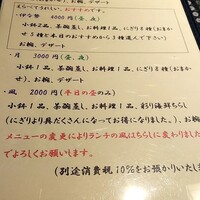 お椀、デザート
えらべてうれしい、おすすめです。
・伊与勢　4000円（昼、夜）
小鉢2品、茶碗蒸し、お料理1品、にぎり8種（おまか
せ5種+本日のおすすめから3種選んで下さい）
お椀、デザート
・月　3000円（昼、夜）
小鉢1品、茶碗蒸し、お料理1品、にぎり8種（おまか
せ）、お椀、デザート
・風　2000円（平日の昼のみ）
小鉢1品、茶碗蒸し、お料理1品、彩り海鮮ちらし
（にぎりより具だくさんになってお得になりました。）、お
椀、デザート
メニューの変更によりランチの風はちらしに変わりました
でよろしくお願いします。
（別途消費税10%をお預かりいたしま